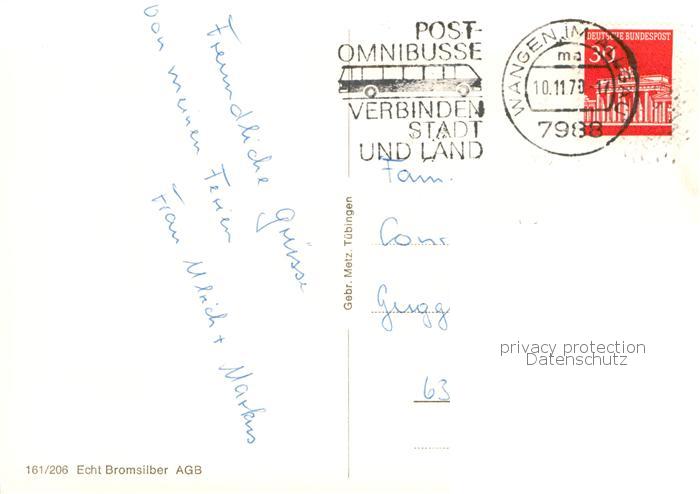 Freundliche Grüsse
von meinen Ferien
Frau Ulrich + Markus
161/206 Echt Bromsilber AGB
Gebr. Metz, Tübingen
POST-
OMNIBUSSE
VERBINDEN
STADT
UND LAND
WANGEN, IM
ma
10.11.70
7988
DEUTSCHE BUNDESPOST
30
Fam.
Conr
Gugg
63
privacy protection
Datenschutz